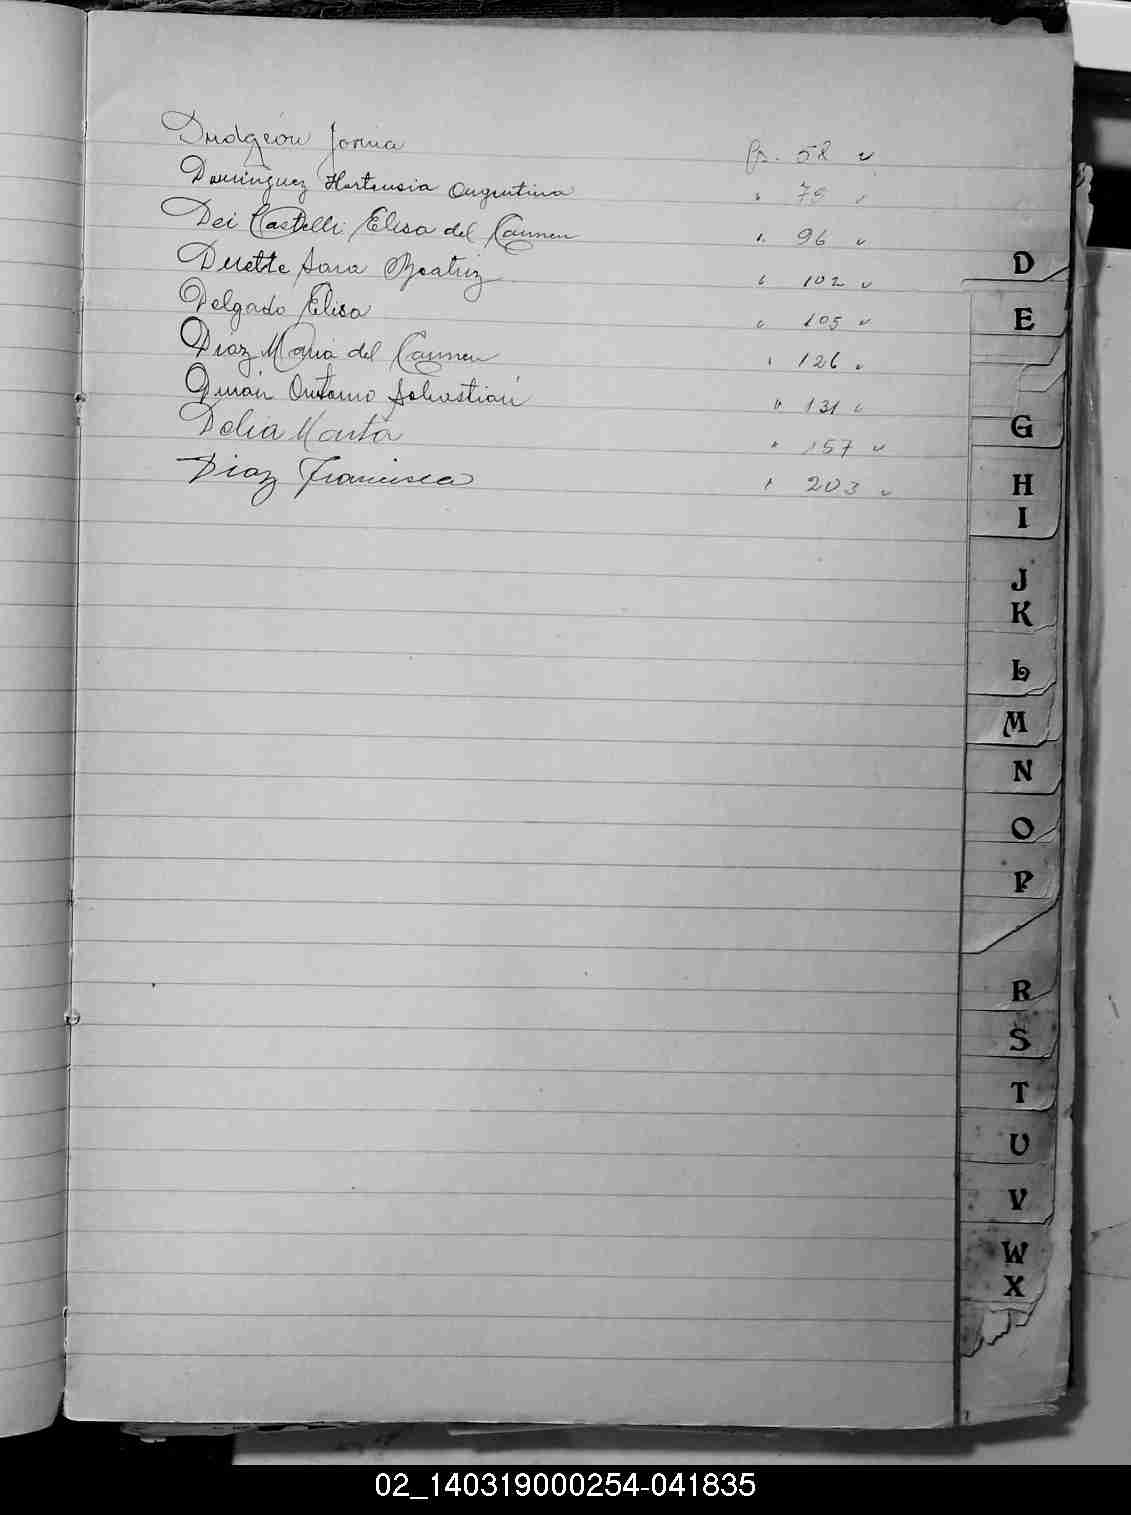 Dudgeón Jorvia fs. 58 v
Dominguez Hortensia Argentina " 75 v
Dei Castelli Elisa del Carmen " 96 v
Duette Sara Beatriz " 102 v
Delgado Elisa " 105 v
Díaz María del Carmen " 126 v
Antonio Sebastian " 131 v
Delia Marta " 157 v
Diaz Francisca " 203 v
D
E
G
H
I
J
K
L
M
N
O
P
R
S
T
U
V
W
X
02_140319000254-041835